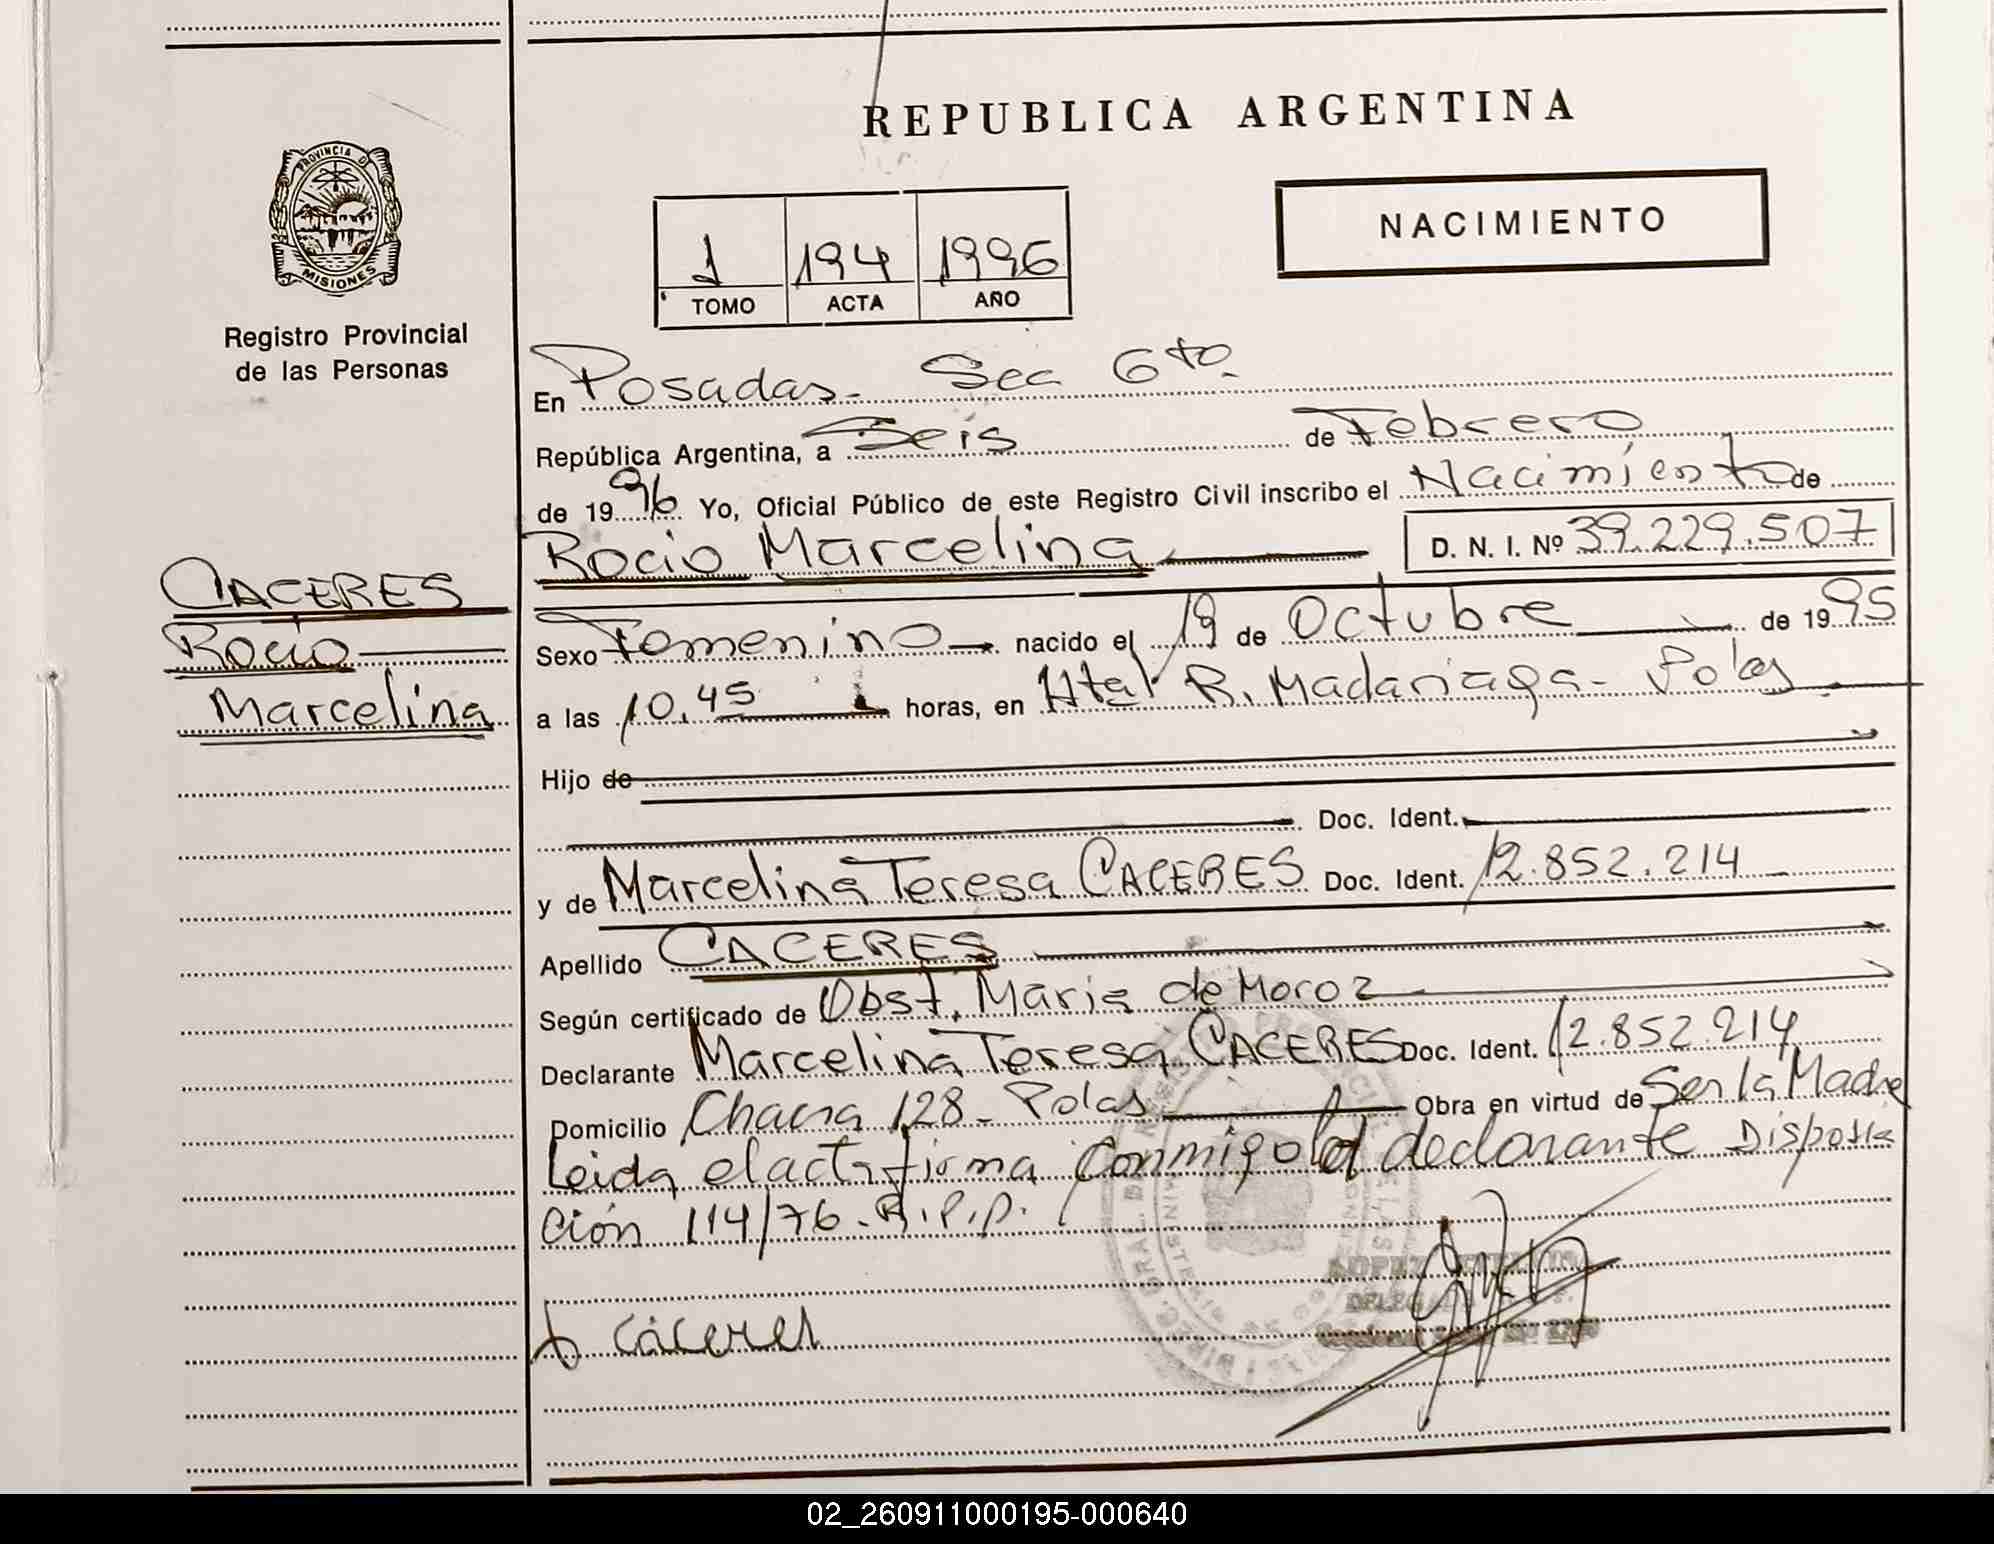 REPUBLICA ARGENTINA
PROVINCIA D
MISIONES
Registro Provincial
de las Personas
NACIMIENTO
1 194 1996
TOMO ACTA AÑO
En Posadas- Sec 6to-
República Argentina, a Seis de Febrero
de 1996 Yo, Oficial Público de este Registro Civil inscribo el Nacimiento de
Rocio Marcelina D. N. I. Nº 39.229.507
CACERES
Rocio
Marcelina
Sexo Femenino nacido el 19 de Octubre de 1995
a las 10,45 horas, en Htal R. Madariaga- Pdas
Hijo de
Doc. Ident.
y de Marcelina Teresa CACERES Doc. Ident. 12.852.214
Apellido CACERES
Según certificado de Obst. Maria de Moroz
Declarante Marcelina Teresa CACERES Doc. Ident. 12.852.214
Domicilio Chacra 128- Pdas Obra en virtud de Ser la Madre
Leida el acta firma conmigo el declarante Disposi
ción 114/76-R.P.P.
Cáceres
02_260911000195-000640